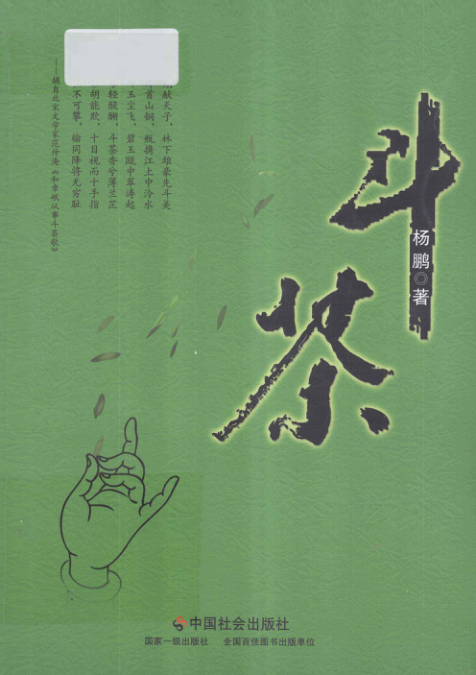 斗茶
杨鹏◎著
献天子，林下雄豪先斗美
首山铜，瓶携江上中泠水
玉尘飞，碧玉瓯中翠涛起
轻醍醐，斗茶香兮薄兰芷
胡能欺，十目视而十手指
不可攀，输同降将无穷耻
——摘自北宋文学家范仲淹《和章岷从事斗茶歌》
中国社会出版社
国家一级出版社 全国百佳图书出版单位